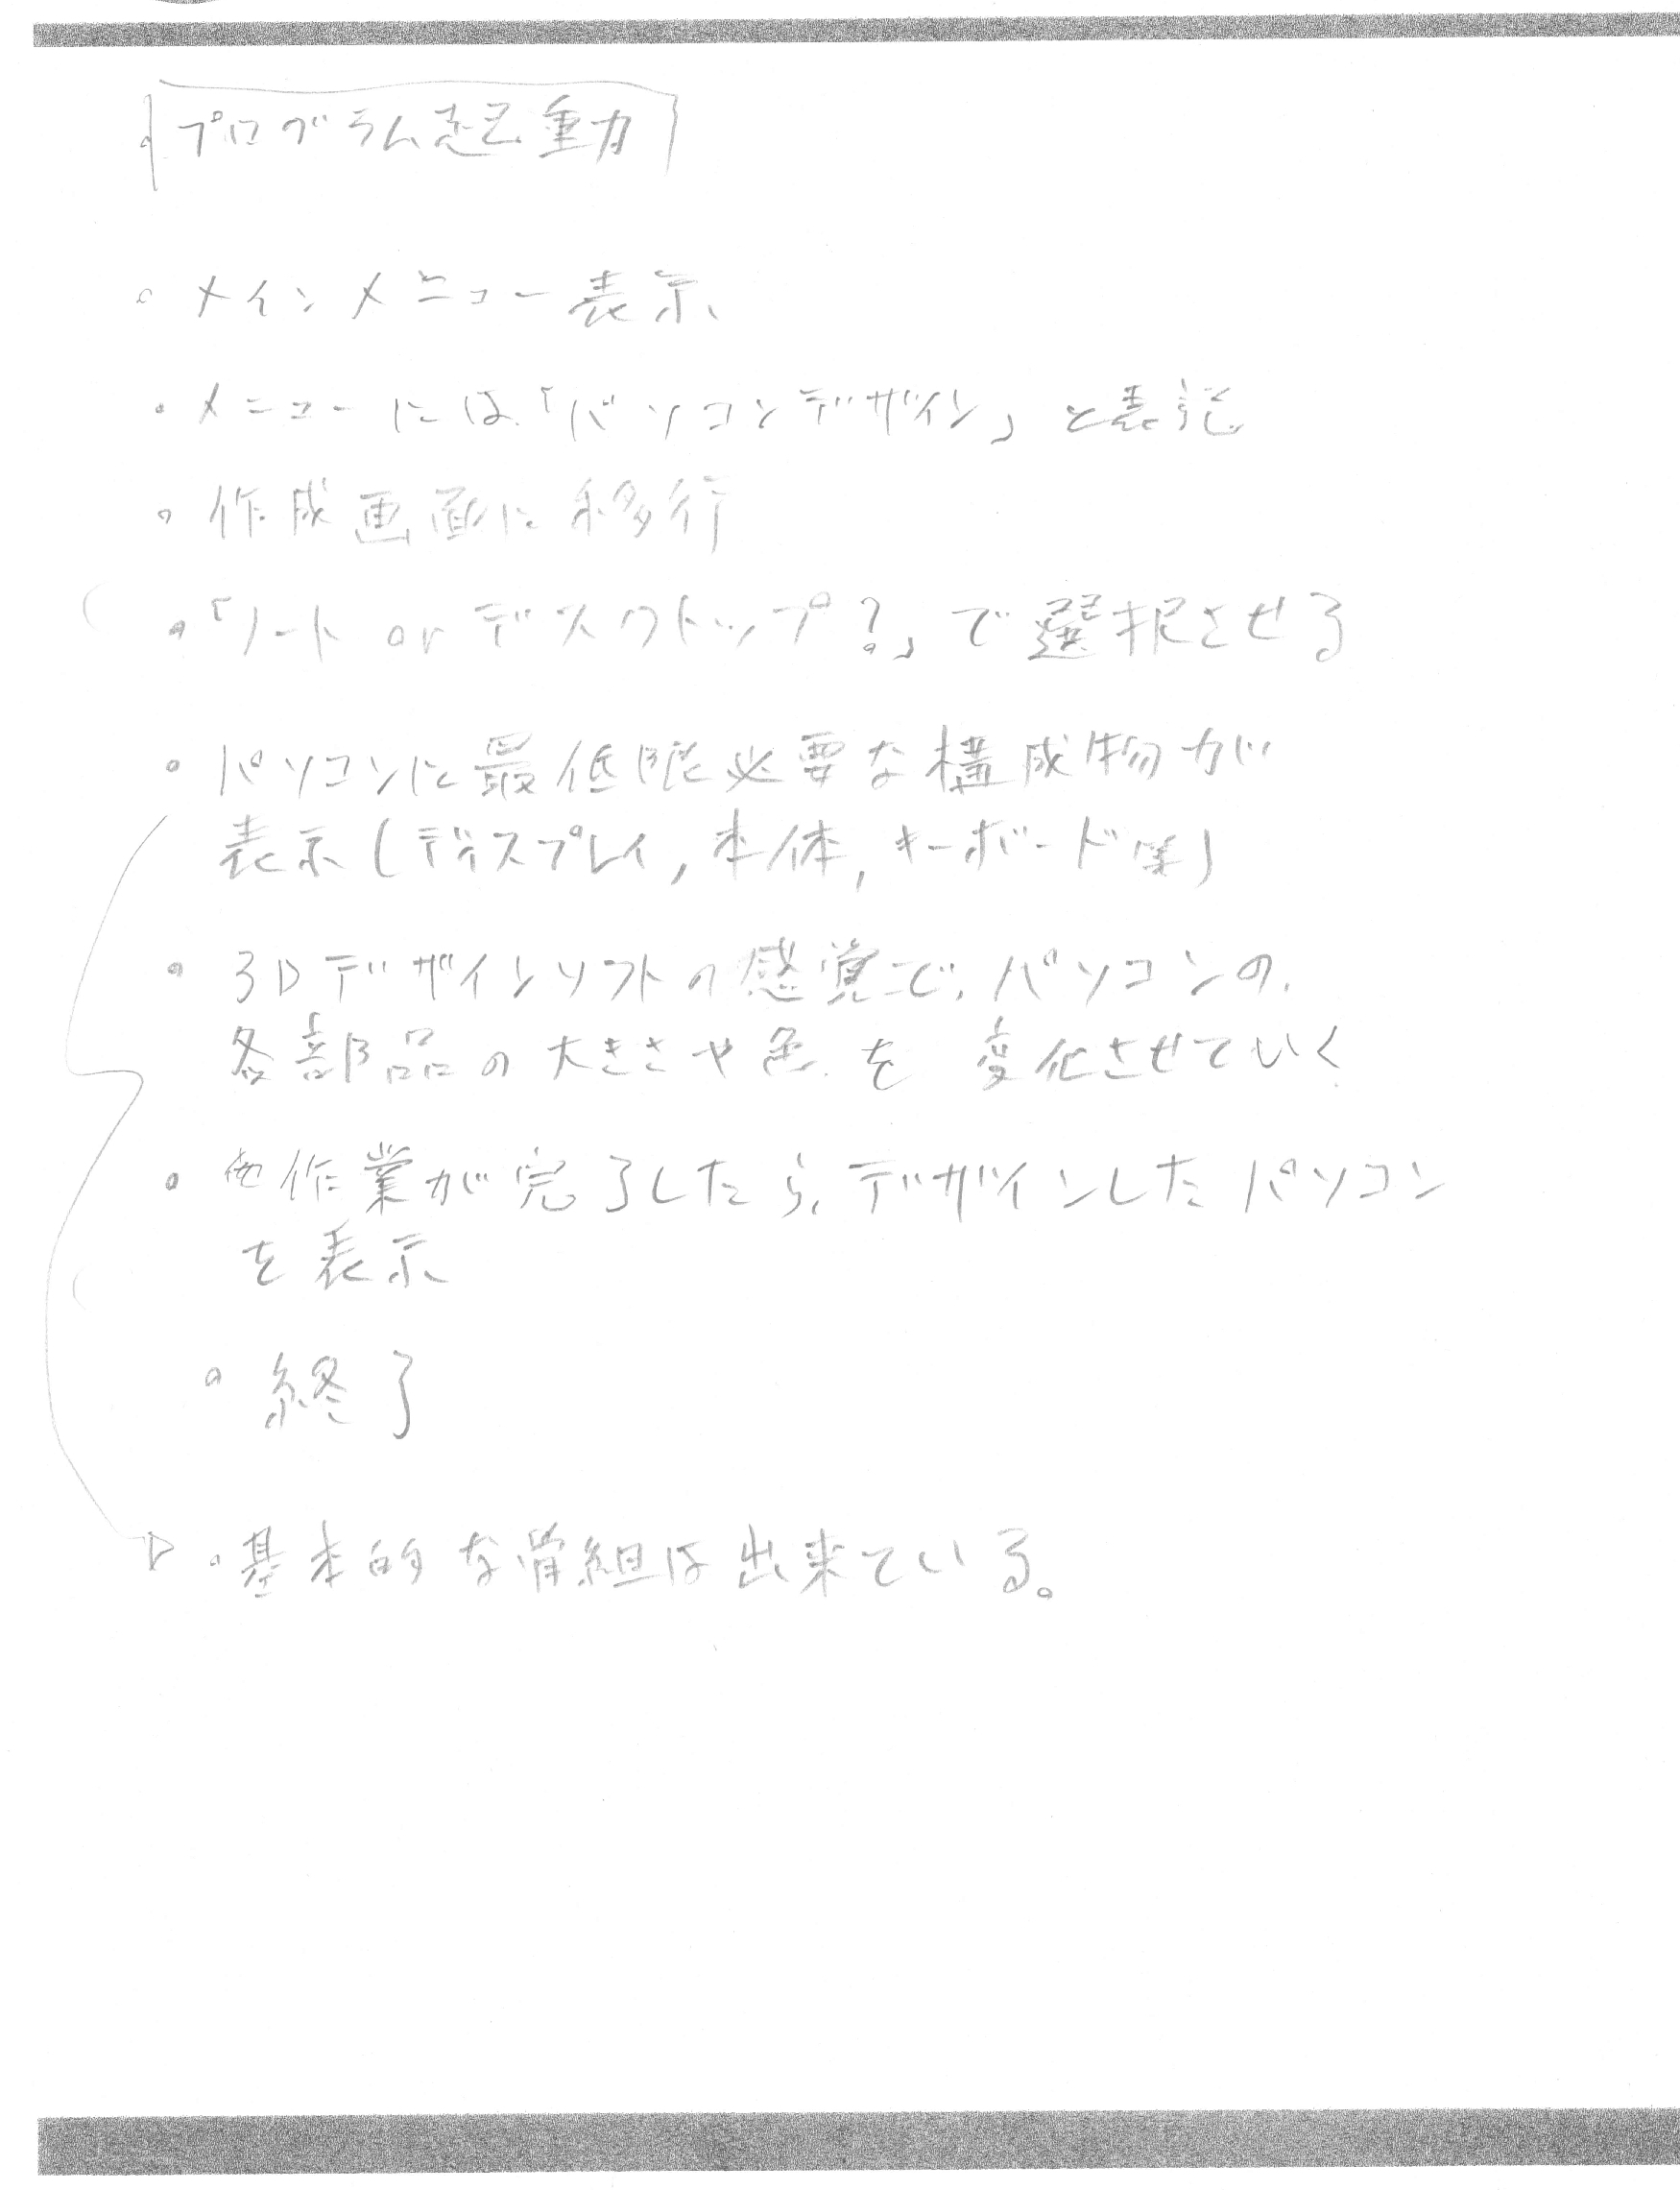 。プログラム起動
。メインメニュー表示
・メニューには「パソコンデザイン」と表記
。作成画面に移行
。「ノート or デスクトップ?」で選択させる
。パソコンに最低限必要な構成物が
表示(ディスプレイ, 本体, キーボード等)
。3Dデザインソフトの感覚で、パソコンの
各部品の大きさや色を変化させていく
。作業が完了したら、デザインしたパソコン
を表示
。終了
・基本的な骨組は出来ている。